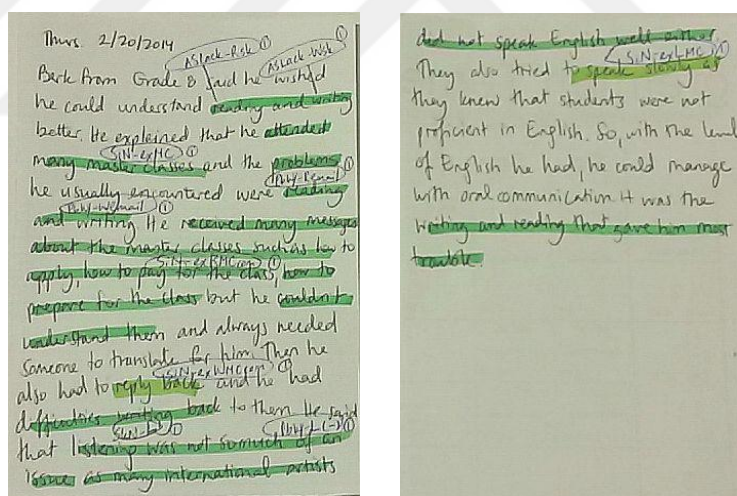 Thurs 2/20/2014
ASLack-Rsk ① ASLack-Wsk ①
Berk from Grade 8 said he wished
he could understand reading and writing
better. He explained that he attended
SiN-exMC ①
many master classes and the problems
he usually encountered were reading
and writing He received many messages
about the master classes such as how to
apply, how to pay for the class, how to
prepare for the class but he couldn't
understand them and always needed
someone to translate for him. Then he
also had to reply back and he had
difficulties writing back to them He said
that listening was not so much of an
issue as many international artists
did not speak English well either.
SiN-exLMC ①
They also tried to speak slowly as
they knew that students were not
proficient in English. So, with the level
of English he had, he could manage
with oral communication. It was the
writing and reading that gave him most
trouble.